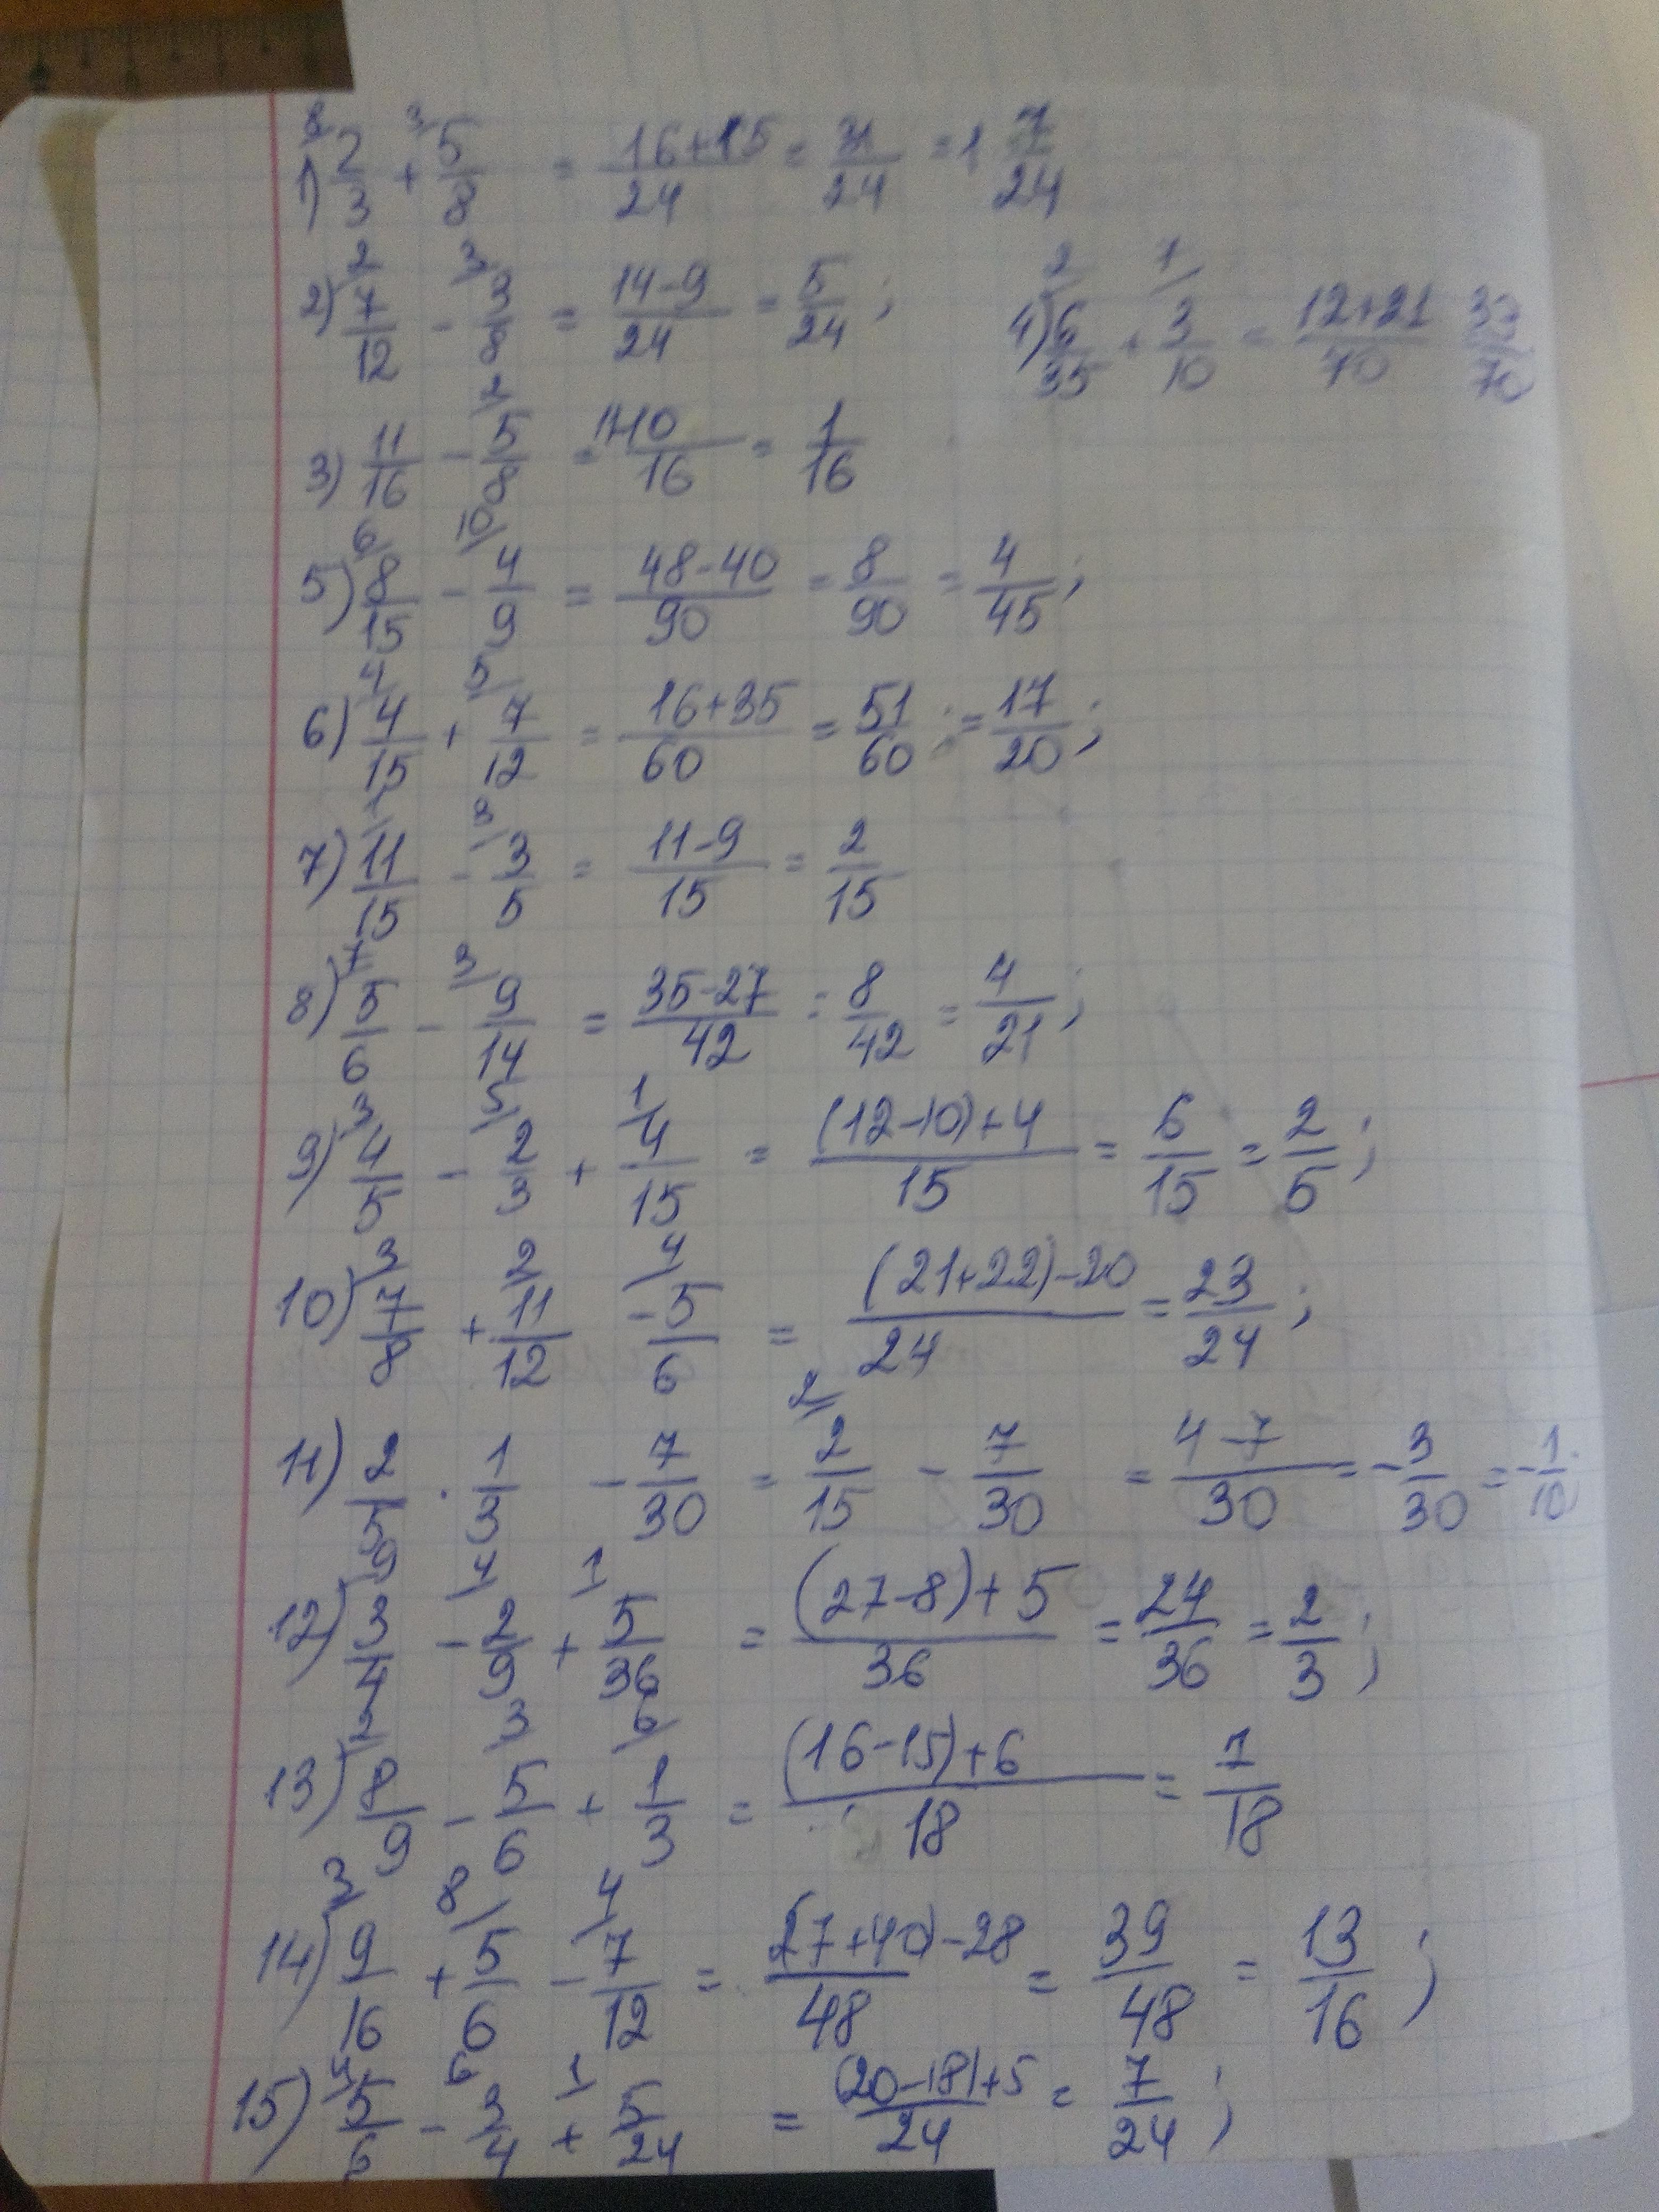 1) 8/ 2/3 + 3/ 5/8 = (16+15)/24 = 31/24 = 1 7/24
2) 2/ 7/12 - 3/ 3/8 = (14-9)/24 = 5/24;
4) 2/ 6/35 + 1/ 3/10 = (12+21)/70 33/70
3) 11/16 - 2/ 5/8 = (11-10)/16 = 1/16
5) 6/ 8/15 - 10/ 4/9 = (48-40)/90 = 8/90 = 4/45;
6) 4/ 4/15 + 5/ 7/12 = (16+35)/60 = 51/60; = 17/20;
7) 1/ 11/15 - 3/ 3/5 = (11-9)/15 = 2/15
8) 7/ 5/6 - 3/ 9/14 = (35-27)/42 = 8/42 = 4/21;
9) 3/ 4/5 - 5/ 2/3 + 1/ 4/15 = ((12-10)+4)/15 = 6/15 = 2/5;
10) 3/ 7/8 + 2/ 11/12 - 4/ 5/6 = ((21+22)-20)/24 = 23/24;
11) 2/5 · 1/3 - 7/30 = 2/ 2/15 - 7/30 = (4-7)/30 = -3/30 = -1/10
12) 9/ 3/4 - 4/ 2/9 + 1/ 5/36 = ((27-8)+5)/36 = 24/36 = 2/3;
13) 2/ 8/9 - 3/ 5/6 + 6/ 1/3 = ((16-15)+6)/18 = 7/18
14) 3/ 9/16 + 8/ 5/6 - 4/ 7/12 = ((27+40)-28)/48 = 39/48 = 13/16;
15) 4/ 5/6 - 6 3/4 + 1/ 5/24 = ((20-18)+5)/24 = 7/24;